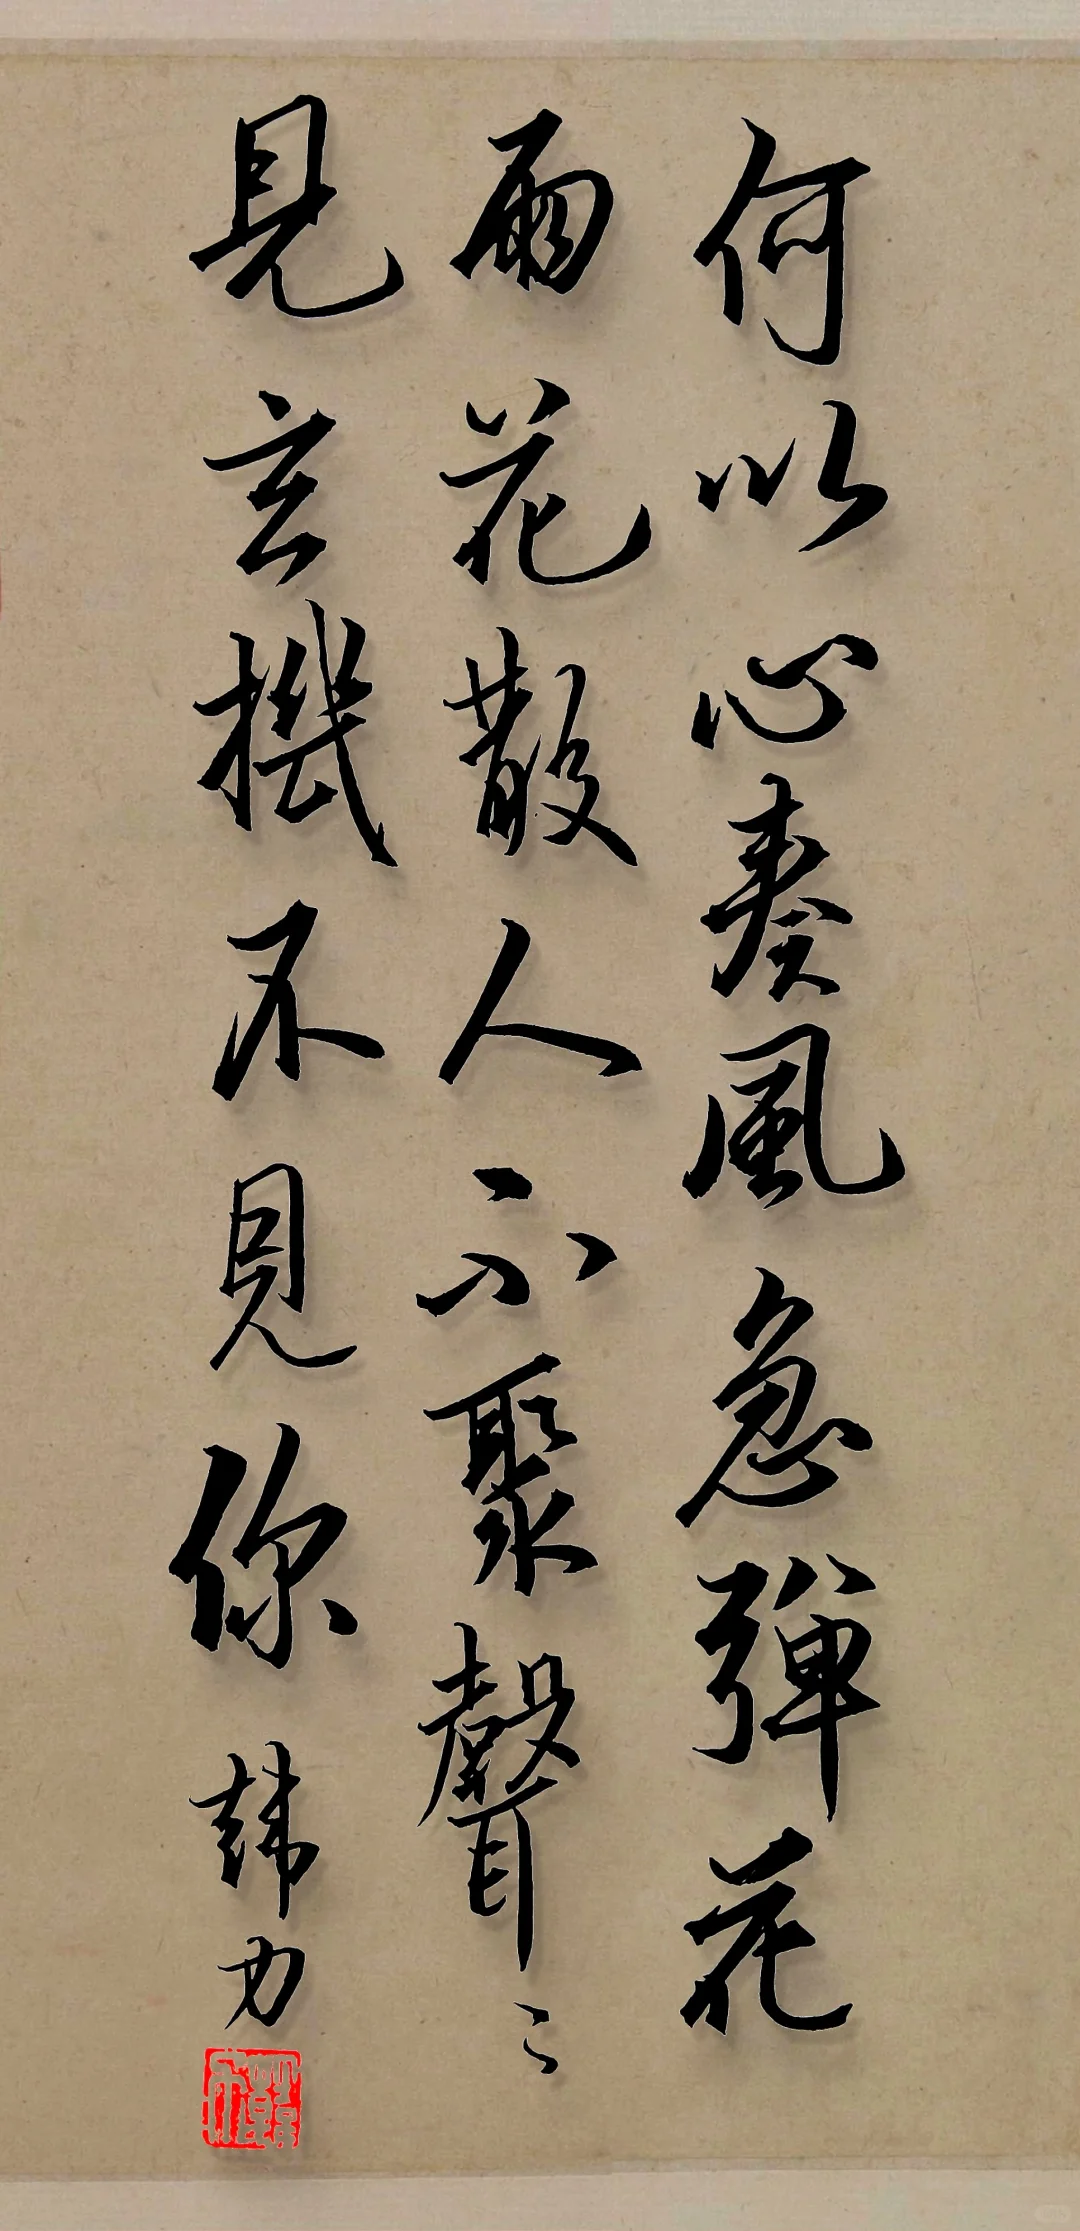 何以心奏風急彈花
雨花散人不聚聲〻
見玄機不見你
韓力